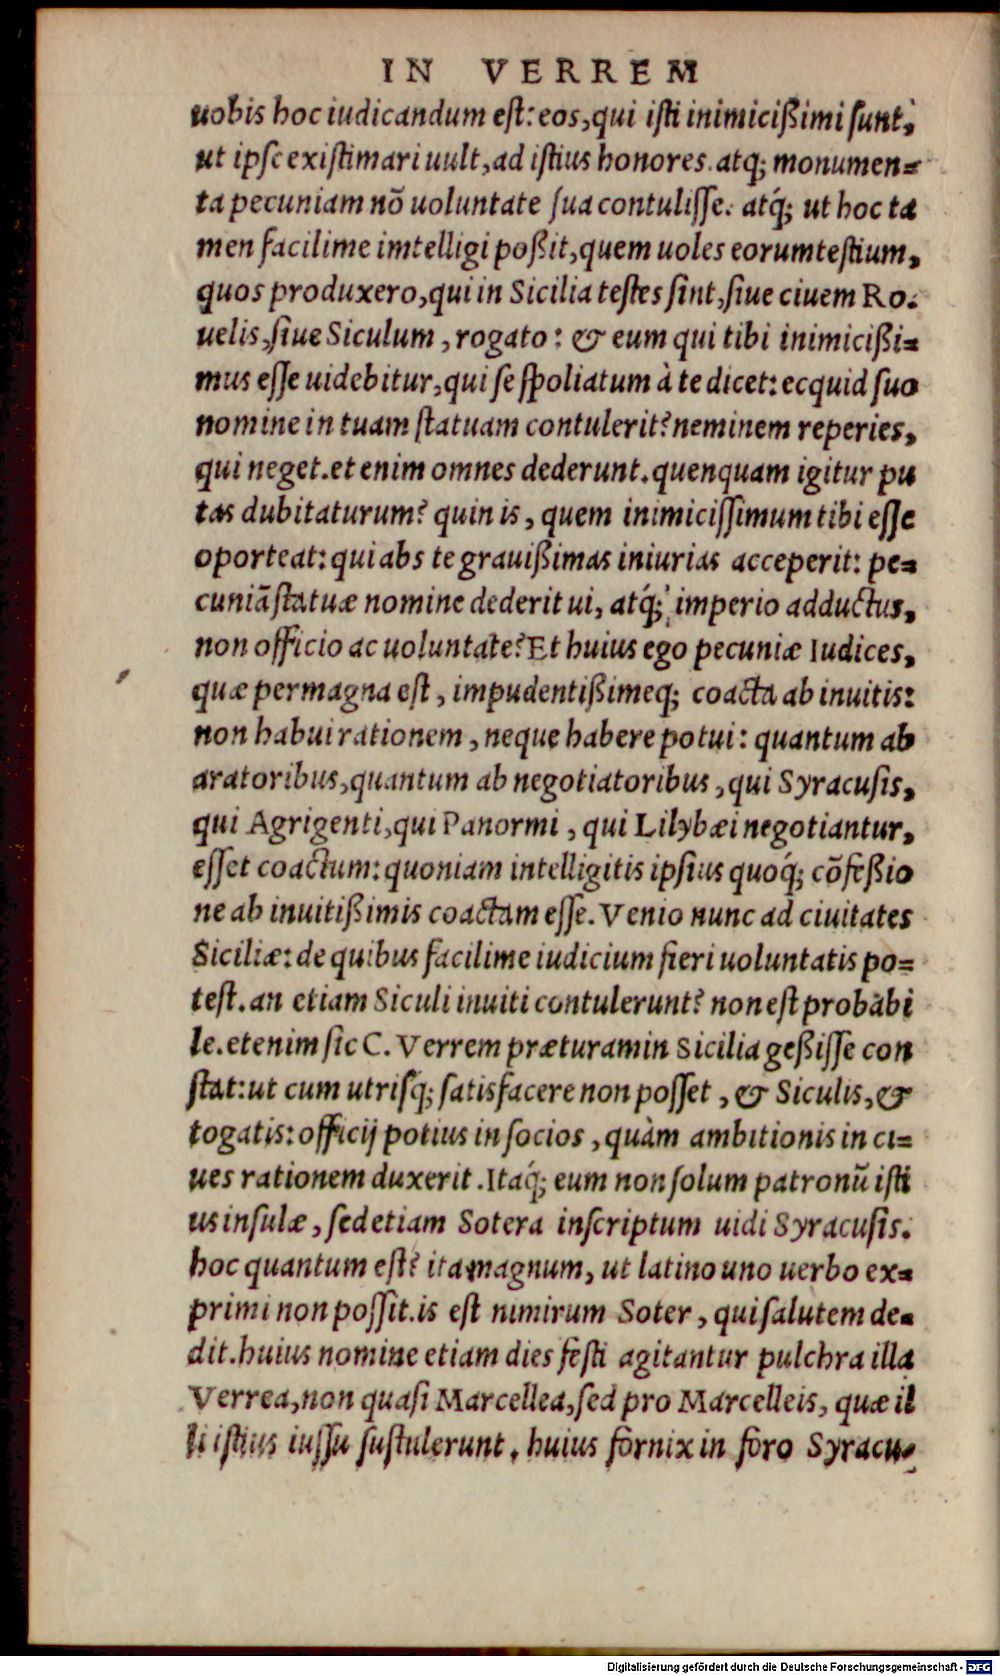 IN VERREM
uobis hoc iudicandum est: eos, qui isti inimicißimi sunt,
ut ipse existimari uult, ad istius honores. atq; monumen-
ta pecuniam nõ uoluntate sua contulisse. atq́; ut hoc ta
men facilime imtelligi poßit, quem uoles eorum testium,
quos produxero, qui in Sicilia testes sint, siue ciuem Ro.
uelis, siue Siculum, rogato: & eum qui tibi inimicißi-
mus esse uidebitur, qui se spoliatum à te dicet: ecquid suo
nomine in tuam statuam contulerit? neminem reperies,
qui neget. et enim omnes dederunt. quenquam igitur pu
tas dubitaturum? quin is, quem inimicissimum tibi esse
oporteat: qui abs te grauißimas iniurias acceperit: pe-
cuniã statuæ nomine dederit ui, atq́; imperio adductus,
non officio ac uoluntate? Et huius ego pecuniæ Iudices,
quæ permagna est, impudentißimeq; coacta ab inuitis:
non habui rationem, neque habere potui: quantum ab
aratoribus, quantum ab negotiatoribus, qui Syracusis,
qui Agrigenti, qui Panormi, qui Lilybæi negotiantur,
esset coactum: quoniam intelligitis ipsius quoq́; cõfeßio
ne ab inuitißimis coactam esse. Venio nunc ad ciuitates
Siciliæ: de quibus facilime iudicium fieri uoluntatis po-
test. an etiam Siculi inuiti contulerunt? non est probabi
le. etenim sic C. Verrem præturam in Sicilia geßisse con
stat: ut cum utrisq́; satisfacere non posset, & Siculis, &
togatis: officij potius in socios, quàm ambitionis in ci-
ues rationem duxerit. Itaq́; eum non solum patronũ isti
us insulæ, sed etiam Sotera inscriptum uidi Syracusis.
hoc quantum est? ita magnum, ut latino uno uerbo ex-
primi non possit. is est nimirum Soter, qui salutem de-
dit. huius nomine etiam dies festi agitantur pulchra illa
Verrea, non quasi Marcellea, sed pro Marcelleis, quæ il
li istius iussu sustulerunt. huius fornix in foro Syracu-
Digitalisierung gefördert durch die Deutsche Forschungsgemeinschaft - DFG